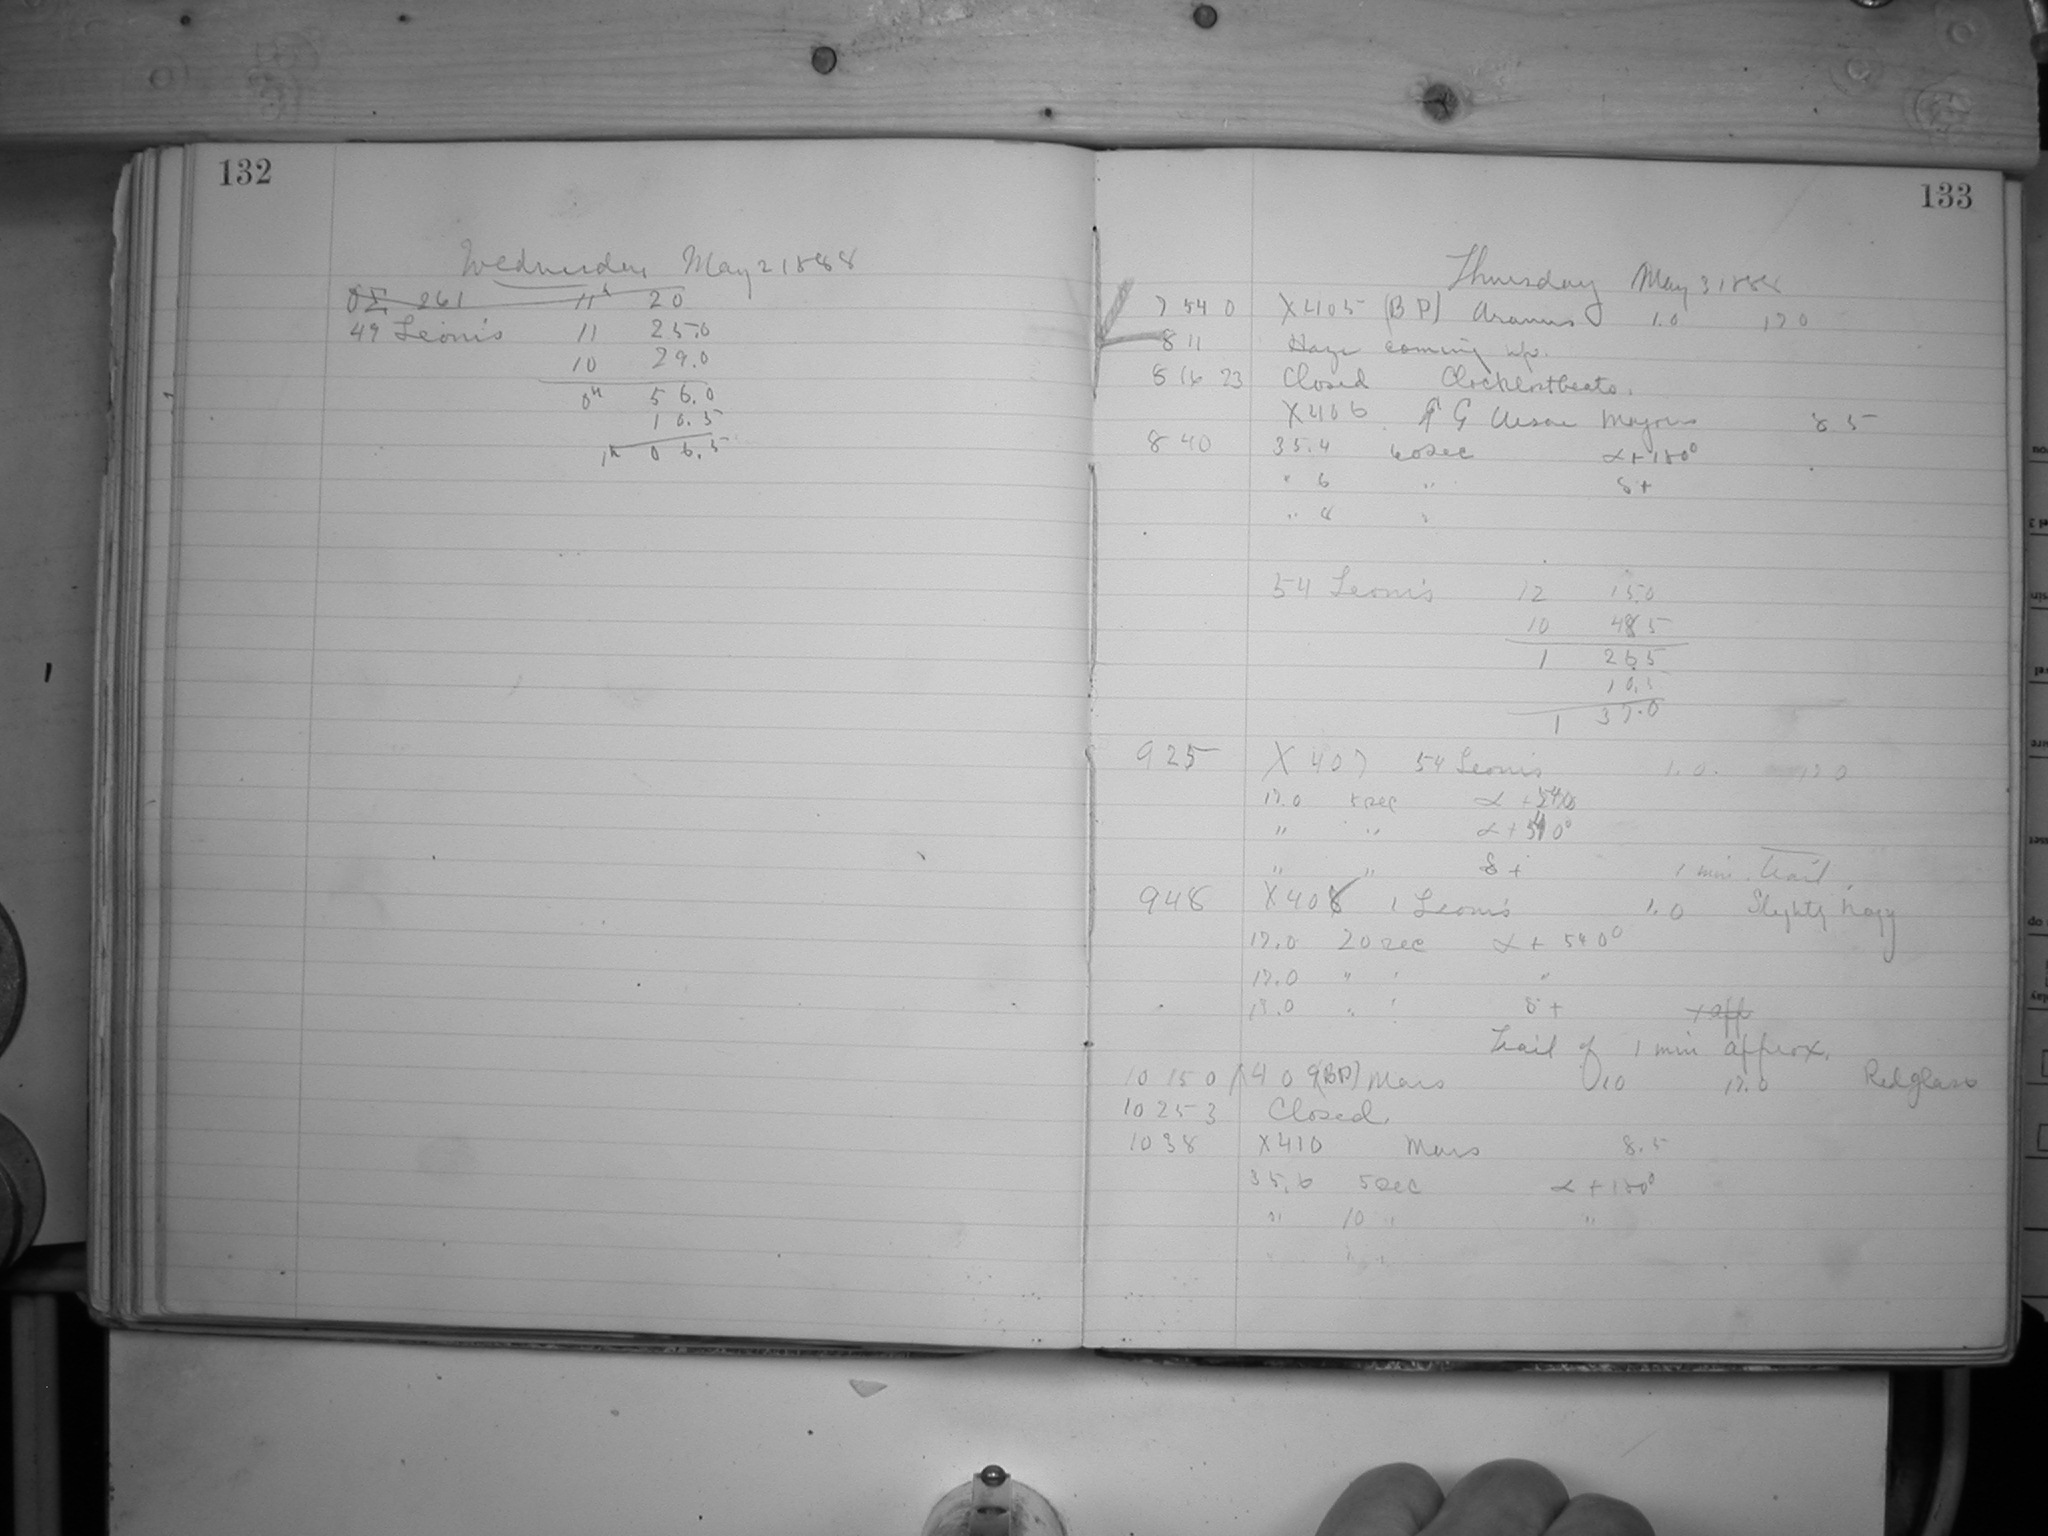 132
Wednesday May 2 1888
OΣ 261 11h 20
49 Leonis 11 25.0
10 29.0
0h 56.0
10.5
1h 06.5
133
Thursday May 3 1888
7 54 0 X405 (BP) Uranus 1.0 17 0
8 11 Haze coming up.
8 16 23 Closed
X406 G Ursae Majoris 8 5
8 40 35.4 60sec α+180°
" 6 " δ+
" 8 "
54 Leonis 12 15.0
10 48 5
1 26.5
10.5
1 37.0
9 25 X 407 54 Leonis 1.0. 17 0
17.0 8sec α +540
" " α+540°
" " δ+ 1 min. trail.
9 48 X408 1 Leonis 1.0 Slightly hazy
17.0 20 sec α + 540°
17.0 " ' "
17.0 " ' δ+
Trail of 1 min approx.
10 15 0 X409 (BP) Mars 10 17.0 Red glass
10 25 3 Closed
10 38 X410 Mars 8.5
35.6 5sec α +180°
" 10 " "